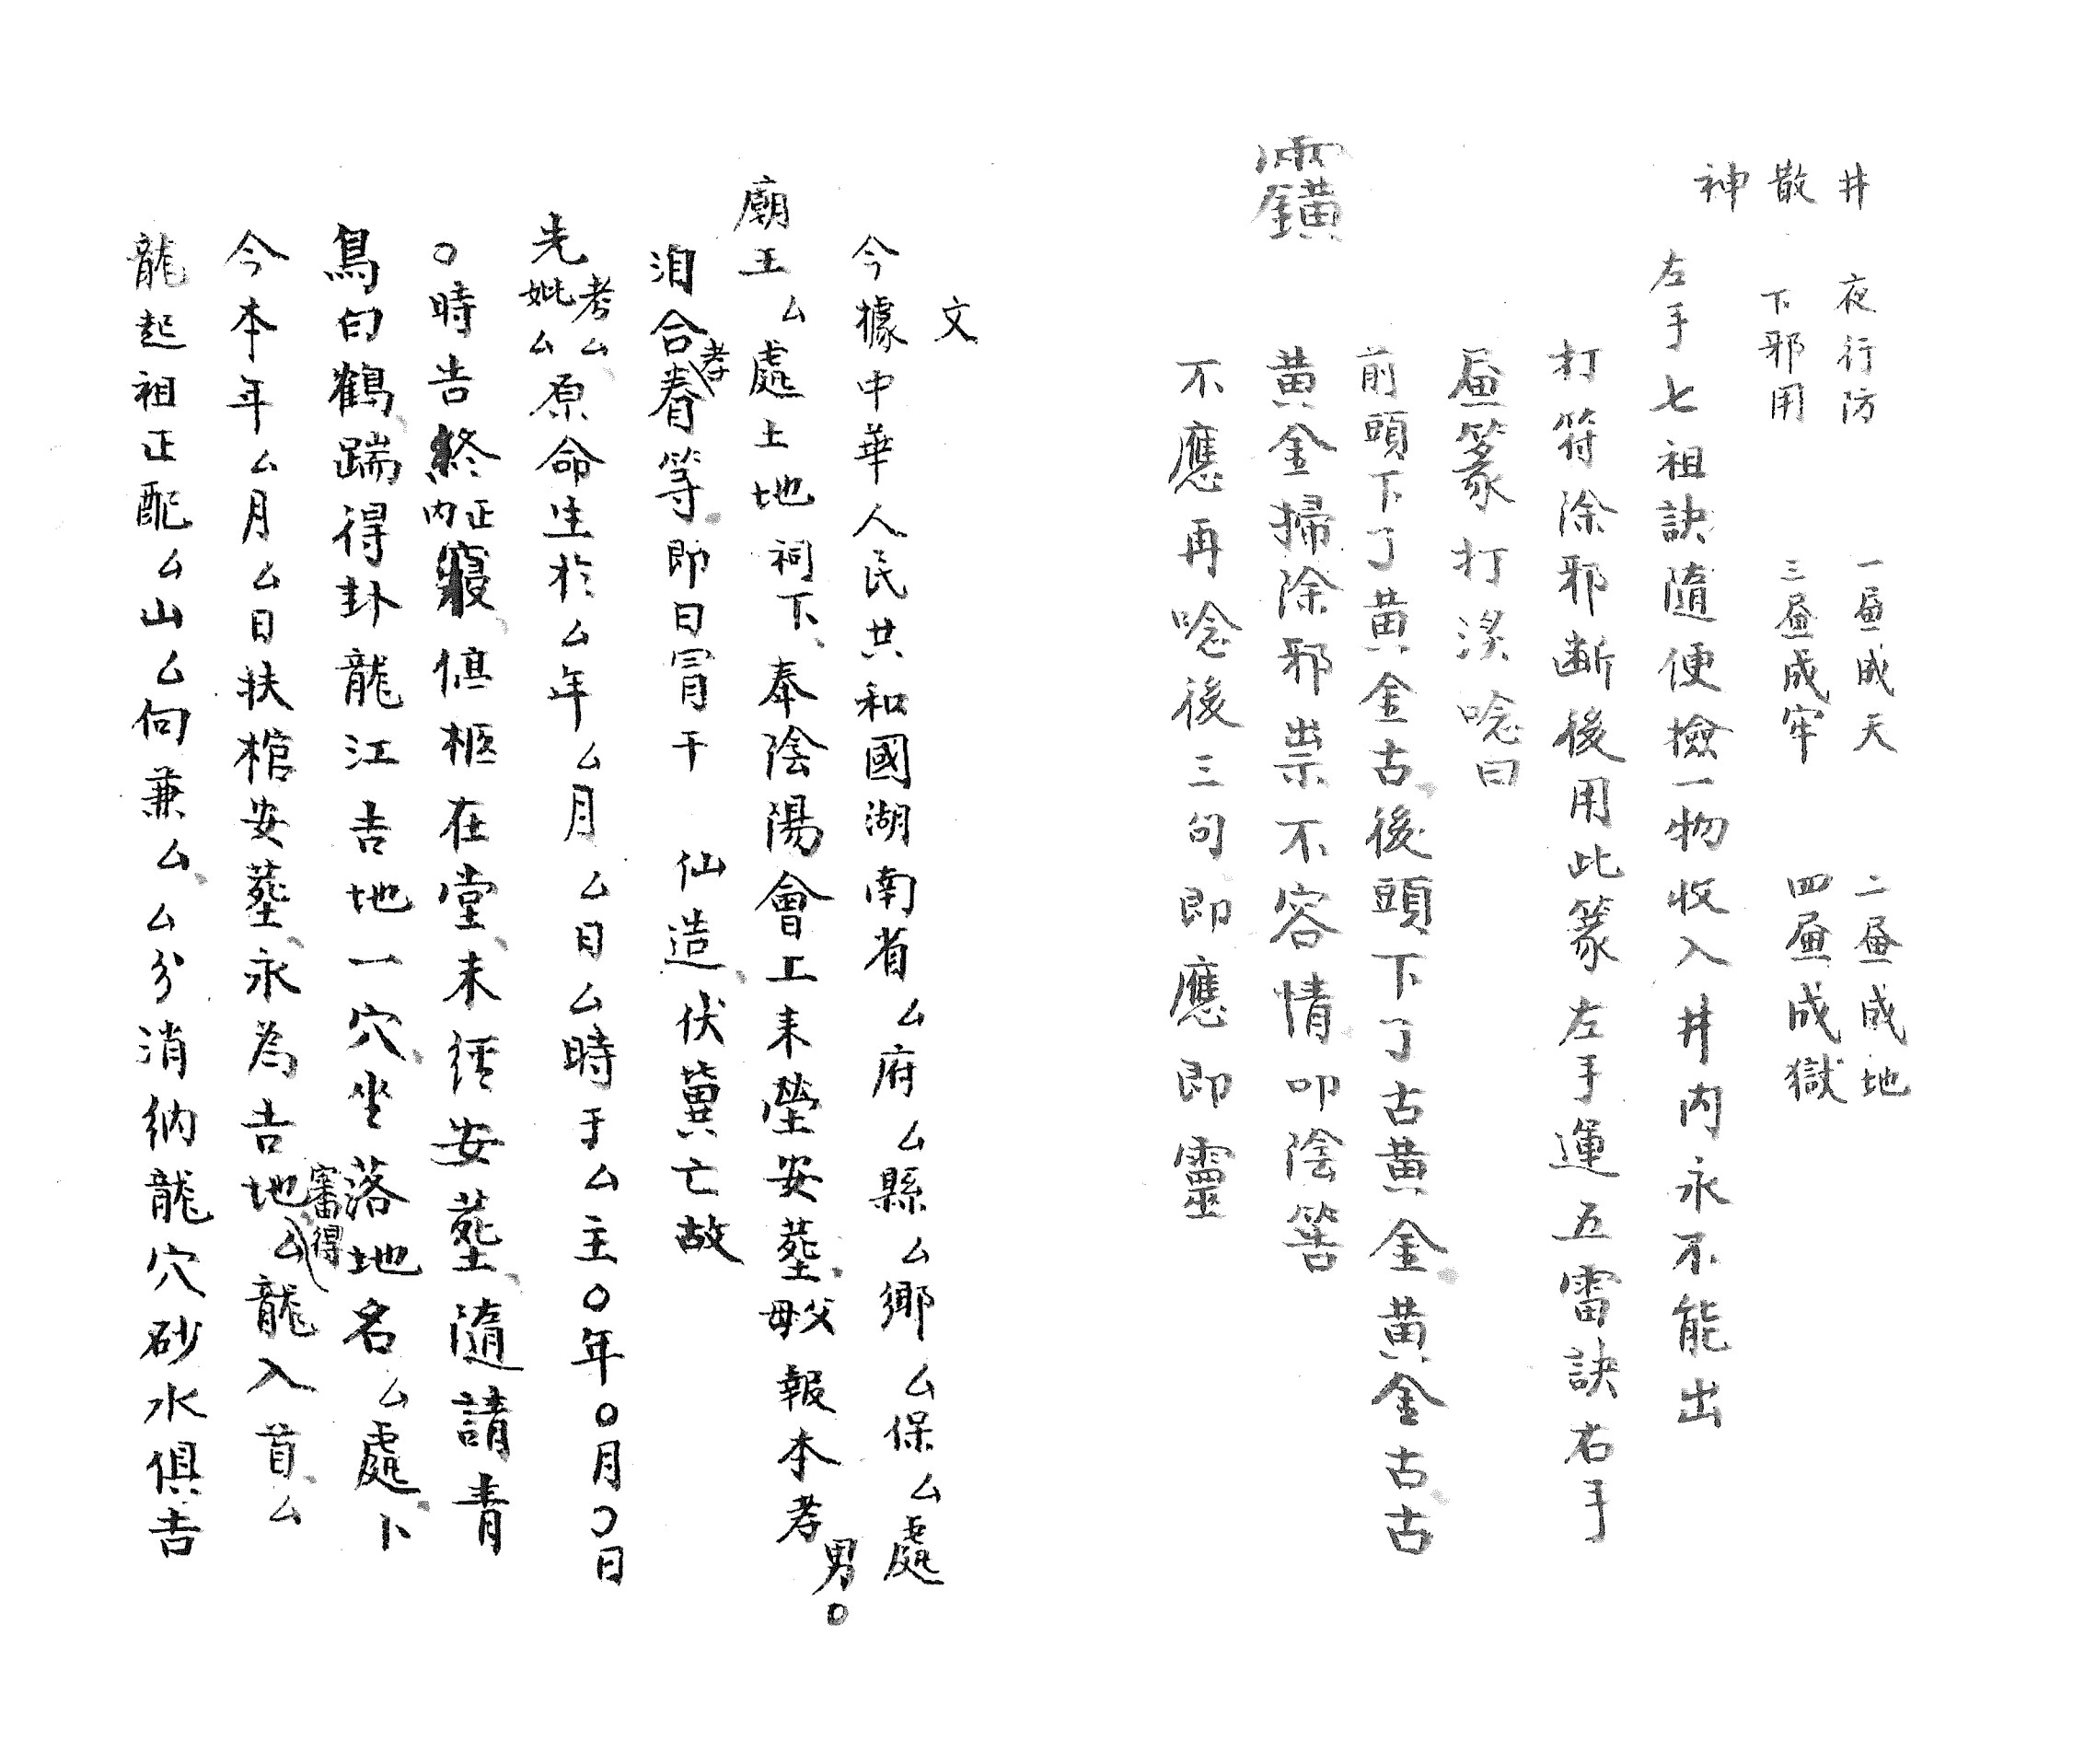 井　夜行防　一畫成天　二畫成地
散　下邪用　三畫成牢　四畫成獄
神
左手七祖訣隨便撿一物收入井內永不能出
打符除邪断後用此篆左手運五雷訣右手
畫篆打渓唸曰
前頭下了黄金古後頭下了古黄金黄金古古
黄金掃除邪祟不容情叩陰筶
不應再唸後三句即應即靈
文
今據中華人民共和國湖南省厶府厶縣厶鄉厶保厶處
廟王厶處土地祠下奉陰陽會工耒塋安塟父母報本孝男○
洎合孝眷等即日冐干　仙造伏冀亡故
先考厶妣厶原命生於厶年厶月厶日厶時于厶主○年○月○日
○時告終正内寢停柩在堂未経安塟隨請青
鳥白鶴踹得卦龍江吉地一穴坐落地名厶處卜
今本年厶月厶日扶棺安塟永為吉地審得厶龍入首厶
龍起祖正配厶山厶向兼厶厶分消納龍穴砂水俱吉